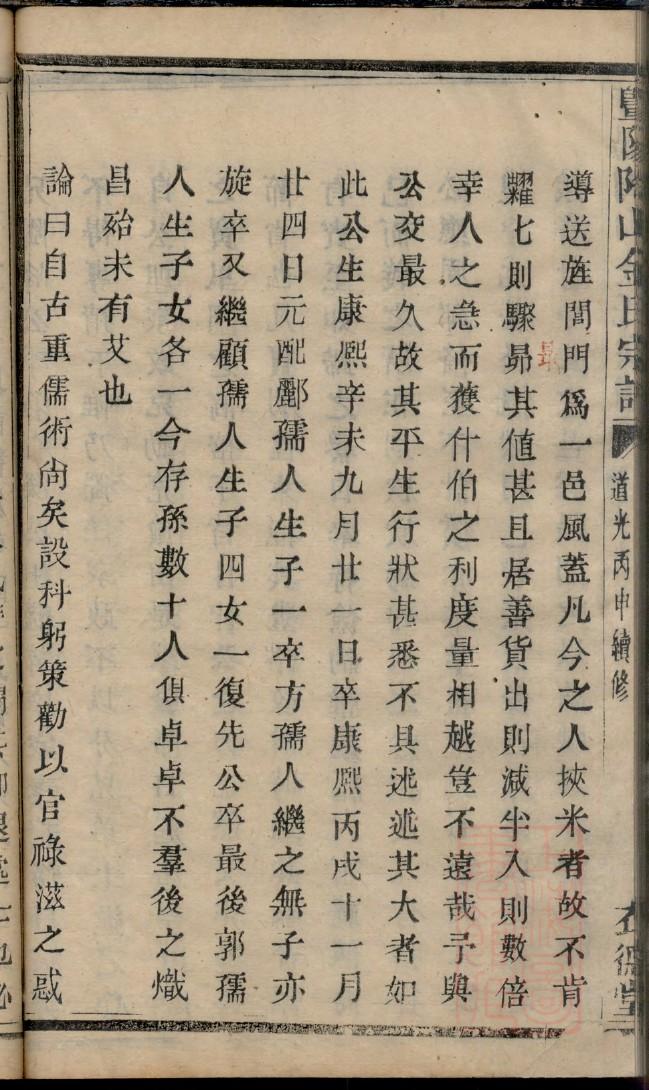 暨陽孝山金氏宗譜
道光丙申續修
導送旌閭門爲一邑風蓋凡今之人挾米者故不肯
糶七則驟昂其値甚且居善貨出則減半入則數倍
幸人之急而獲什伯之利度量相越豈不遠哉予與
公交最久故其平生行狀甚悉不具述述其大者如
此公生康熈辛未九月廿一日卒康熈丙戌十一月
廿四日元配酈孺人生子一卒方孺人繼之無子亦
旋卒又繼顧孺人生子四女一復先公卒最後郭孺
人生子女各一今存孫數十人俱卓卓不羣後之熾
昌殆未有艾也
論曰自古重儒術尙矣設科躬策勸以官祿滋之惑